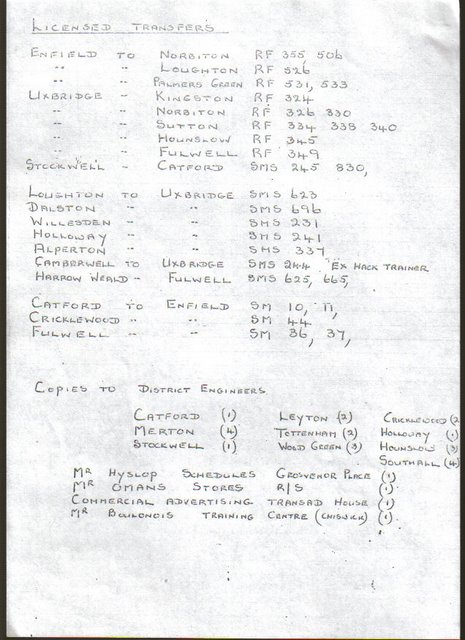 LICENSED TRANSFER'S
ENFIELD TO NORBITON RF 355 506
" " LOUGHTON RF 526
" " PALMERS GREEN RF 531, 533
UXBRIDGE " KINGSTON RF 324
" " NORBITON RF 326 330
" " SUTTON RF 334 338 340
" " HOUNSLOW RF 345
" " FULWELL RF 349
STOCKWELL - CATFORD SMS 245 830,
LOUGHTON TO UXBRIDGE SMS 623
DALSTON " " SMS 696
WILLESDEN " " SMS 231
HOLLOWAY " " SMS 241
ALPERTON " " SMS 337
CAMBERWELL TO UXBRIDGE SMS 244 "EX HACK TRAINER
HARROW WEALD - FULWELL SMS 625, 665,
CATFORD TO ENFIELD SM 10, 11,
CRICKLEWOOD " " SM 44
FULWELL " " SM 36, 37,
COPIES TO DISTRICT ENGINEERS
CATFORD (1) LEYTON (2) CRICKLEWOOD (2
MERTON (4) TOTTENHAM (2) HOLLOWAY (1)
STOCKWELL (1) WOOD GREEN (3) HOUNSLOW (3)
SOUTHALL (4)
MR HYSLOP SCHEDULES GROSVENOR PLACE (1)
MR OMANS STORES R/S (1)
COMMERCIAL ADVERTISING TRANSAD HOUSE (1)
MR BOULONOIS TRAINING CENTRE (CHISWICK) (1)